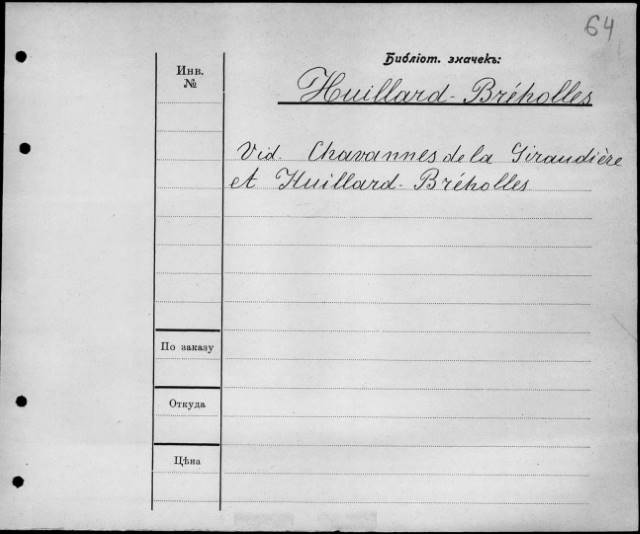 64
Библіот. значекъ:
Инв.
№
Huillard-Bréholles
Vid. Chavannes de la Giraudière
et Huillard-Bréholles
По заказу
Откуда
Цѣна